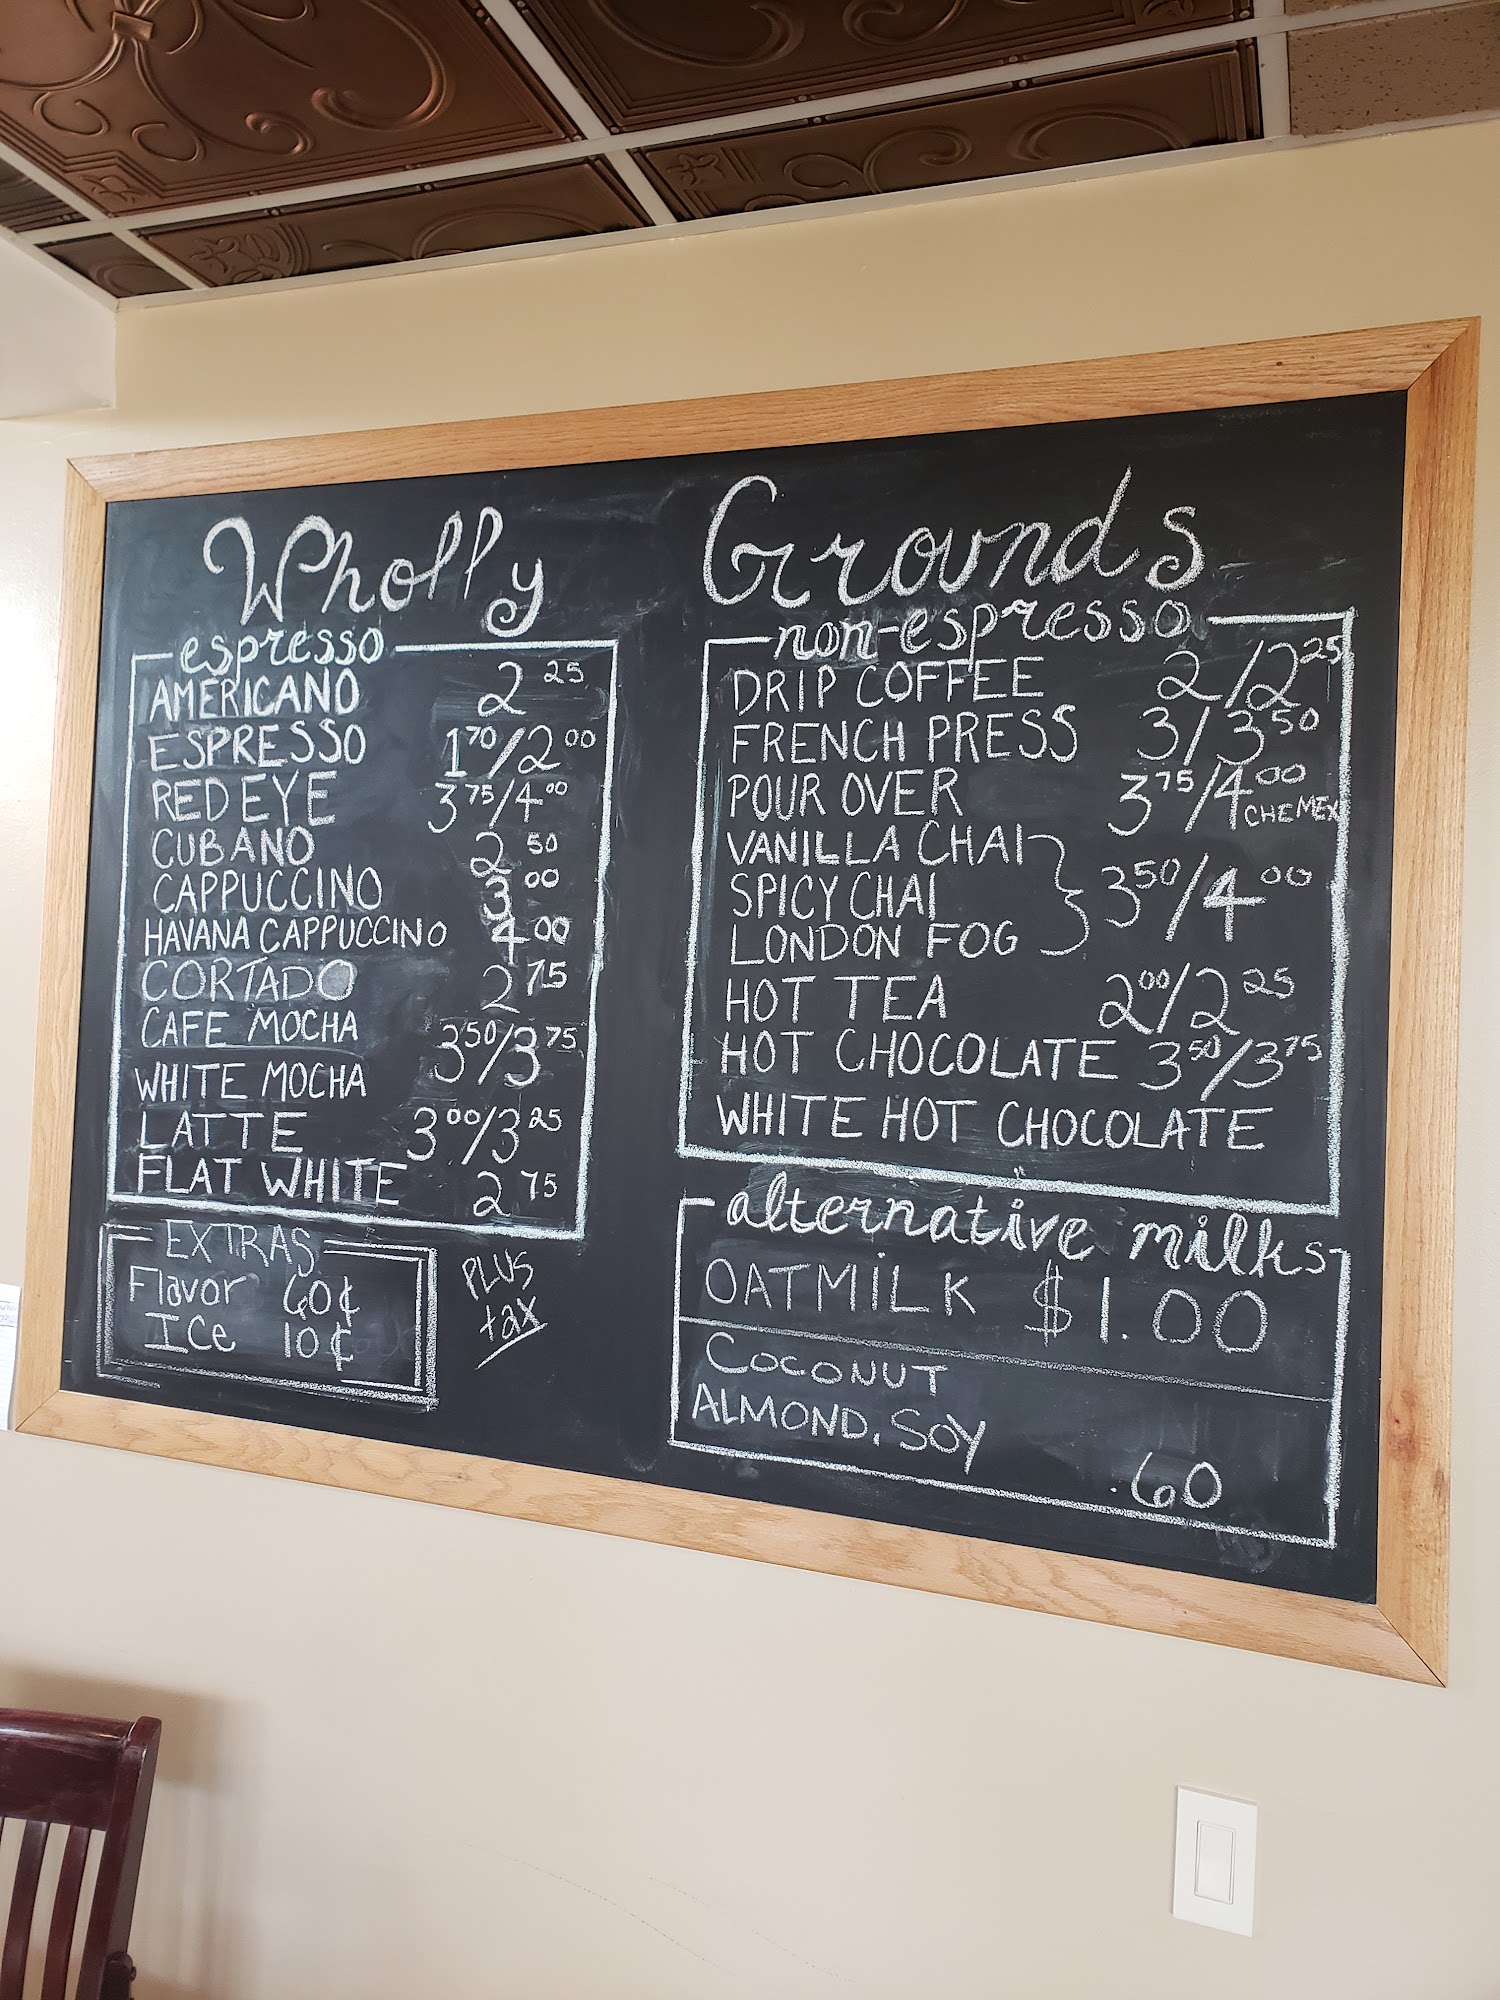 Wholly Grounds
espresso
AMERICANO 2 25
ESPRESSO 1 70/2 00
RED EYE 3 75/4 00
CUBANO 2 50
CAPPUCCINO 3 00
HAVANA CAPPUCCINO 4 00
CORTADO 2 75
CAFE MOCHA 3 50/3 75
WHITE MOCHA
LATTE 3 00/3 25
FLAT WHITE 2 75
EXTRAS
Flavor 60¢
ICe 10¢
PLUS
tax
non-espresso
DRIP COFFEE 2/2 25
FRENCH PRESS 3/3 50
POUR OVER 3 75/4 00
CHEMEX
VANILLA CHAI
SPICY CHAI 3 50/4 00
LONDON FOG
HOT TEA 2 00/2 25
HOT CHOCOLATE 3 50/3 75
WHITE HOT CHOCOLATE
alternative milks
OATMILK $1.00
COCONUT
ALMOND, SOY
.60